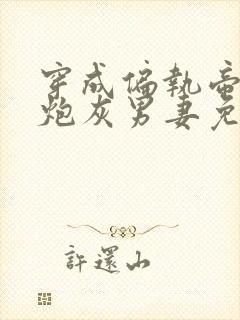 穿成偏執帝
炮灰男妻免
許還山